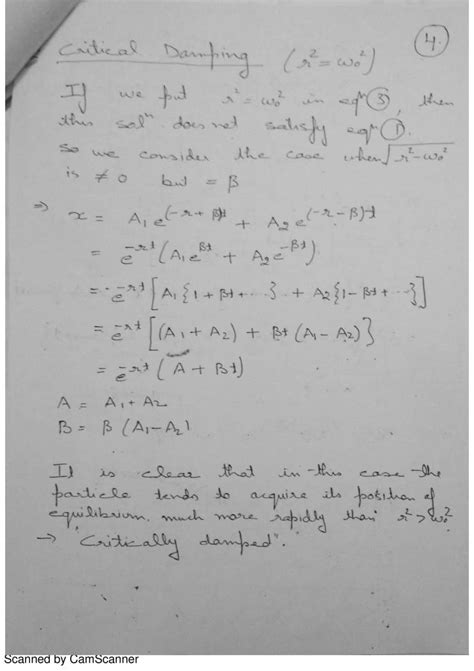 4.
Critical Damping (r² = ω₀²)
If we put r² = ω₀² in eqⁿ ③, then
this solⁿ does not satisfy eqⁿ ①.
so we consider the case when √r²-ω₀²
is ≠ 0 but = β
⇒ x = A₁e^(-r+β)t + A₂e^(-r-β)t
= e^-rt (A₁e^βt + A₂e^-βt)
= e^-rt [A₁{1+βt+...} + A₂{1-βt+...}]
= e^-rt [(A₁+A₂) + βt(A₁-A₂)}
= e^-rt (A + Bt)
A = A₁+A₂
B = β (A₁-A₂)
It is clear that in this case the
particle tends to acquire its position of
equilibrium much more rapidly than r²>ω₀²
→ "Critically damped".
Scanned by CamScanner